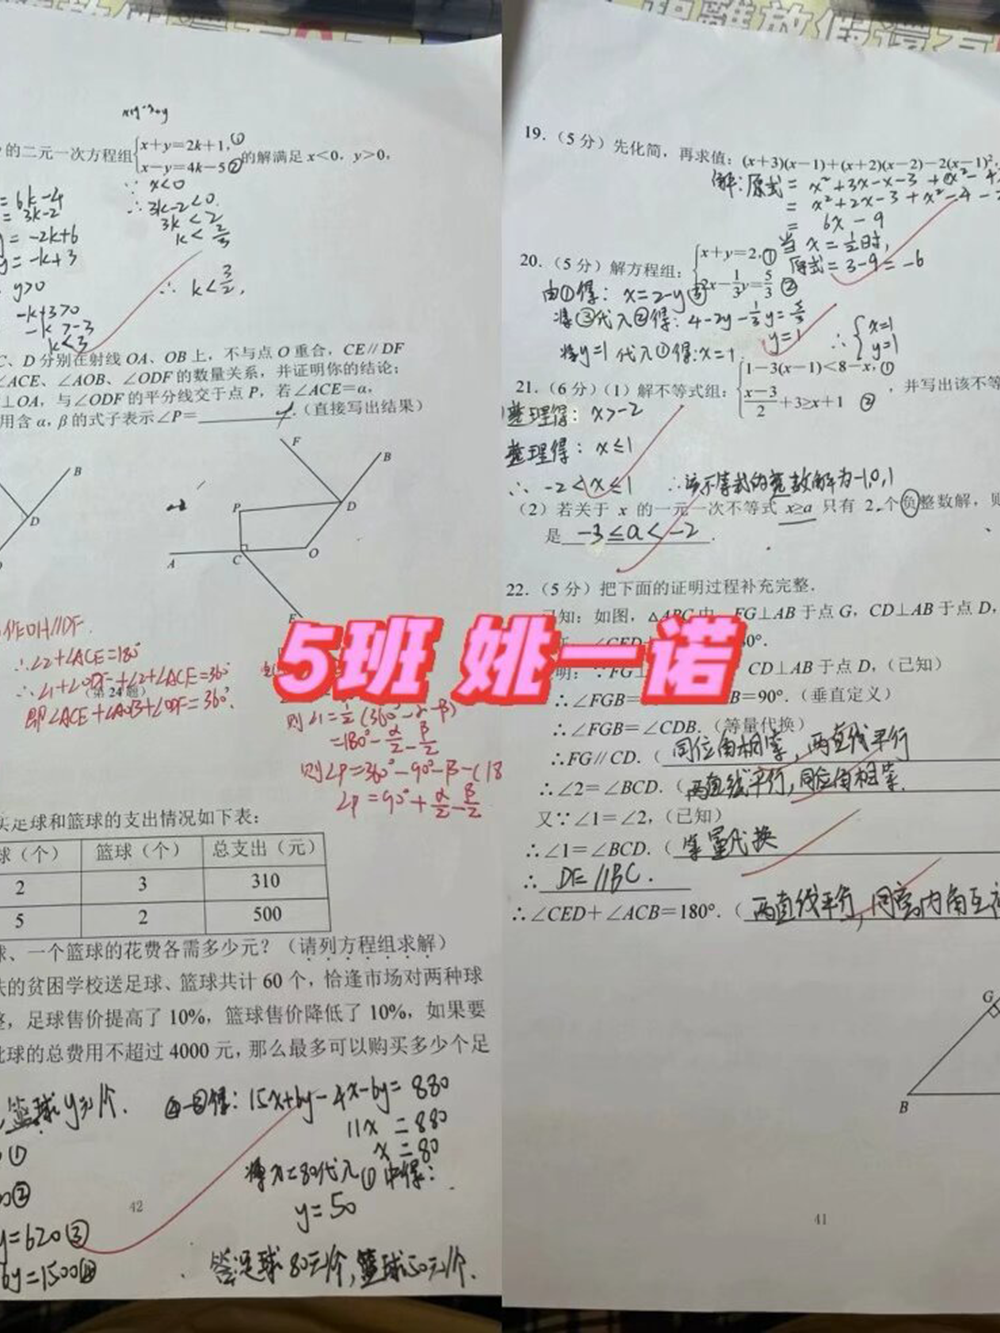 的二元一次方程组{x+y=2k+1,①
x-y=4k-5②的解满足x<0,y>0,
= 6k-4
= 3k-2
= -2k+6
y = -k+3
y>0
-k+3>0
-k>-3
k<3
∵ x<0
∴ 3k-2<0
3k<2
k<2/3
∴ k<3/2,
C、D 分别在射线 OA、OB 上，不与点 O 重合，CE∥DF
∠ACE、∠AOB、∠ODF 的数量关系，并证明你的结论；
⊥OA，与∠ODF 的平分线交于点 P，若∠ACE=α，
用含 α，β 的式子表示∠P=（直接写出结果）
B
D
F
B
P
D
A
C
O
E
作OH∥DF.
∴∠2+∠ACE=180°
∴∠1+∠ODF+∠2+∠ACE=360°
（第 24 题）
即∠ACE+∠AOB+∠ODF=360°.
则∠1=½(360°-α-β)
=180°-α/2-β/2
则∠P=360°-90°-β-(18
∠P=90°+α/2-β/2
买足球和篮球的支出情况如下表：
球（个） 篮球（个） 总支出（元）
2 3 310
5 2 500
球、一个篮球的花费各需多少元？（请列方程组求解）
的贫困学校送足球、篮球共计 60 个，恰逢市场对两种球
整，足球售价提高了 10%，篮球售价降低了 10%，如果要
此球的总费用不超过 4000 元，那么最多可以购买多少个足
篮球y元/个.
①
②
y=620③
6y=1500④
④-③得：15x+6y-4x-6y=880
11x=880
x=80
将x=80代入①中得：
y=50
答：足球80元/个，篮球50元/个.
42
19.（5 分）先化简，再求值：(x+3)(x-1)+(x+2)(x-2)-2(x-1)²，
解：原式= x²+3x-x-3+x²-4
= x²+2x-3+x²-4-
= 6x-9
当 x=½时,
原式=3-9=-6
20.（5 分）解方程组：{x+y=2,①
2x-1/3y=5/3 ②
由①得：x=2-y③
将③代入②得：4-2y-1/3y=5/3
y=1
将y=1代入①得：x=1
∴{x=1
y=1
21.（6 分）（1）解不等式组：{1-3(x-1)<8-x,①
(x-3)/2+3≥x+1 ②，并写出该不等
整理得：x>-2
整理得：x≤1
∴ -2<x≤1 ∴该不等式的整数解为-1,0,1
（2）若关于 x 的一元一次不等式 x≥a 只有 2 个负整数解，则
是 -3≤a<-2.
22.（5 分）把下面的证明过程补充完整.
已知：如图，△ABC 中，FG⊥AB 于点 G，CD⊥AB 于点 D，
5班 姚一诺
CD⊥AB 于点 D，（已知）
∴∠FGB=
B=90°.（垂直定义）
∴∠FGB=∠CDB.（等量代换）
∴FG∥CD.（同位角相等，两直线平行
∴∠2=∠BCD.（两直线平行，同位角相等.
又∵∠1=∠2，（已知）
∴∠1=∠BCD.（等量代换
∴ DE∥BC.
∴∠CED+∠ACB=180°.（两直线平行，同旁内角互
G
B
41